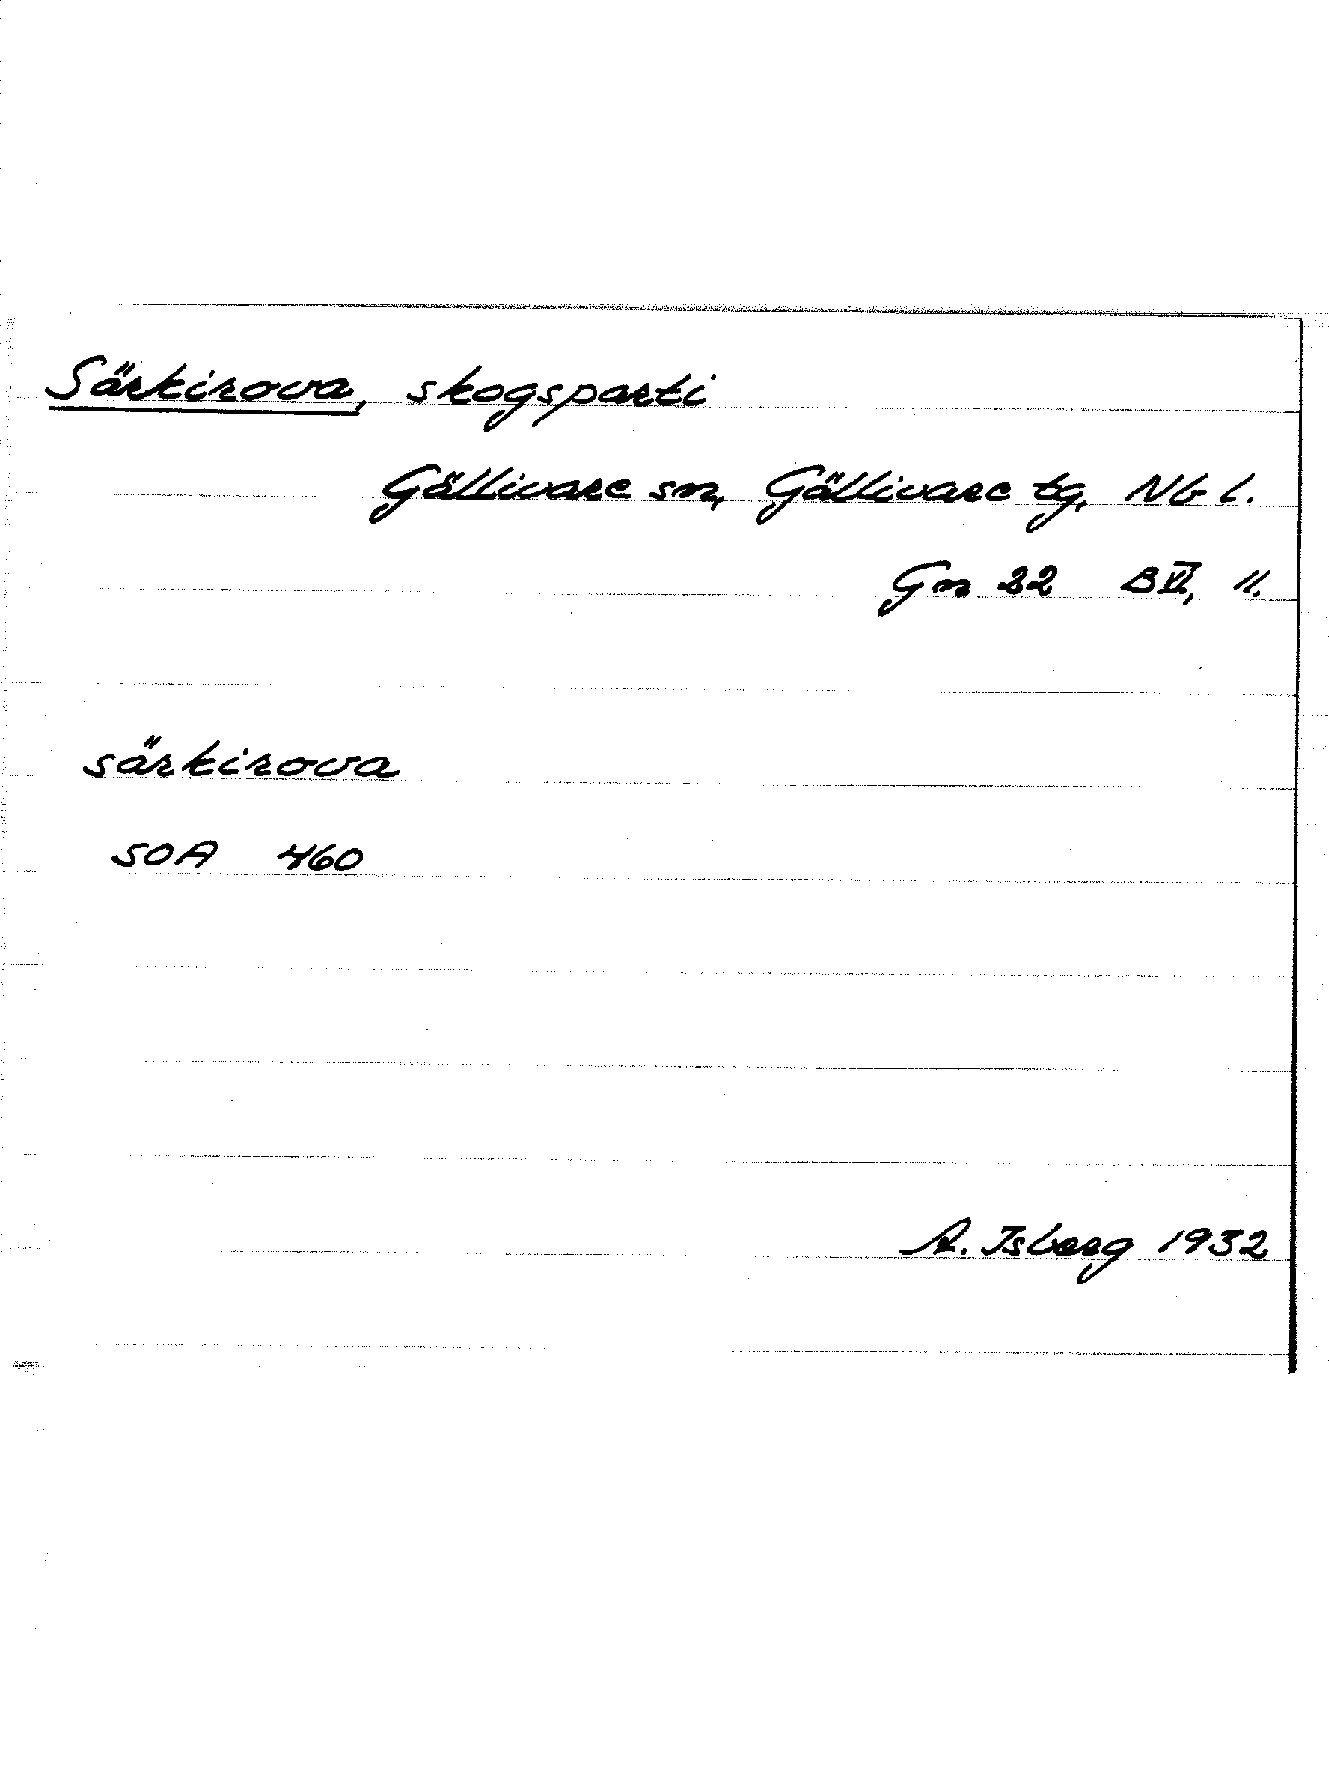 Särkirova, skogsparti
Gällivare sn, Gällivare tg, Nb l.
Gn 22 BVI, 11.
särkirova
SOA 460
A. Isberg 1932